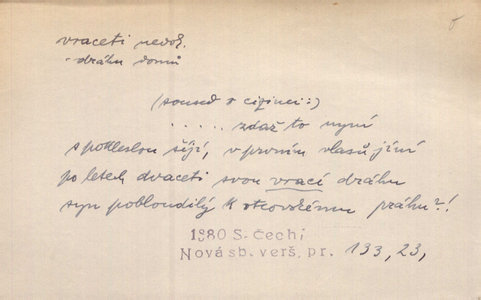 vraceti nedok.
dráhu domů
(soused o cizinci:)
..... zdaž to nyní
s pokleslou šíjí, v prvním vlasů jíní
po letech dvaceti svou vrací dráhu
syn pobloudilý k otcovskému prahu?!
1880 S. Čech,
Nová sb. verš. pr. 133, 23,